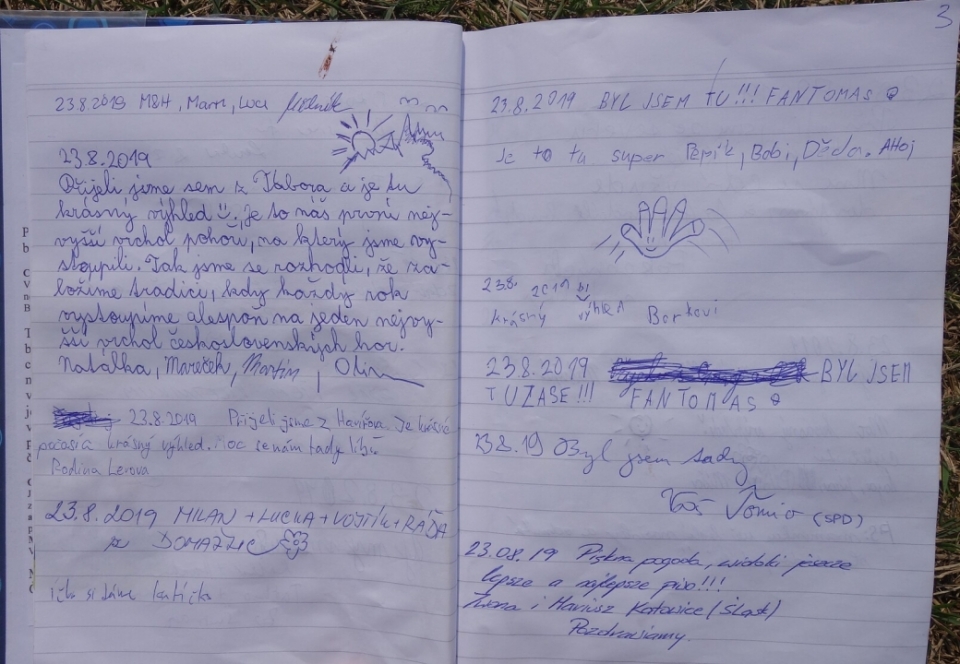 23.8.2019 M&H, Mam, Luci
23.8.2019
Přijeli jsme sem z Tábora a je tu
krásný výhled. Je to náš první nej-
vyšší vrchol pohoří, na který jsme vy-
stoupili. Tak jsme se rozhodli, že za-
ložíme tradici, kdy každý rok
vystoupíme alespoň na jeden nejvy-
šší vrchol československých hor.
Natálka, Mareček, Martin, Olin
23.8.2019 Přijeli jsme z Havířova je krásné
počasí a krásný výhled. moc se nám tady líbí.
Rodina
23.8.2019 MILAN + LUCKA + VOJTÍK + RÁĎA
z DOMAŽLIC
si dáme
3
23.8.2019 BYL JSEM TU!!! FANTOMAS
Je to tu super Pepík, Bobi, Děda. AHoj
23.8. 2019 byl
krásný výhled Borkovi
23.8.2019 BYL JSEM
TU ZASE!!! FANTOMAS
23.8.19 Byl jsem tady
Váš Tomio (SPD)
23.08.19 Piękna pogoda, widoki jeszcze
lepsze a najlepsze piwo!!!
Iwona i Mariusz Katowice (Śląsk)
Pozdrawiamy.